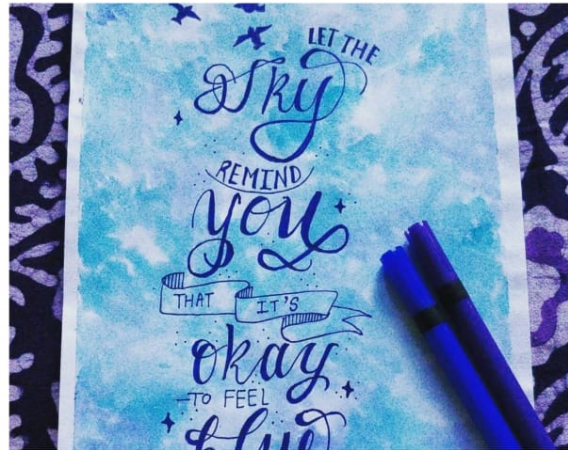 LET THE
Sky
REMIND
you
THAT IT'S
okay
TO FEEL
blue